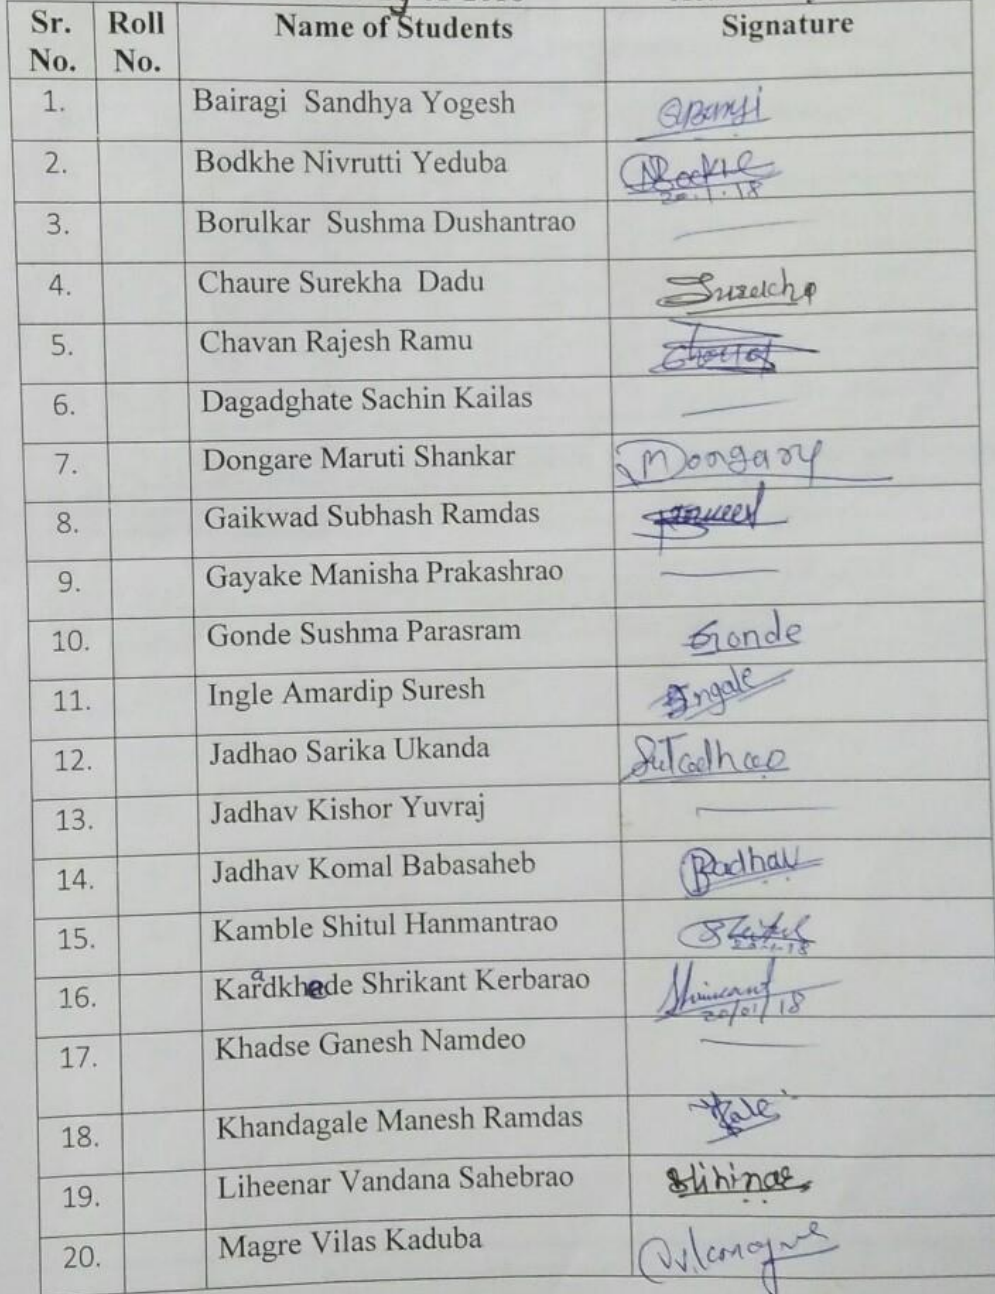 Sr. No. Roll No. Name of Students Signature
1. Bairagi Sandhya Yogesh
2. Bodkhe Nivrutti Yeduba NBodkhe
20.1.18
3. Borulkar Sushma Dushantrao
4. Chaure Surekha Dadu Surekha
5. Chavan Rajesh Ramu
6. Dagadghate Sachin Kailas
7. Dongare Maruti Shankar MDongary
8. Gaikwad Subhash Ramdas
9. Gayake Manisha Prakashrao
10. Gonde Sushma Parasram Gonde
11. Ingle Amardip Suresh Ingale
12. Jadhao Sarika Ukanda
13. Jadhav Kishor Yuvraj
14. Jadhav Komal Babasaheb
15. Kamble Shitul Hanmantrao Shitul
16. Karadkhede Shrikant Kerbarao Shrikant
20/01/18
17. Khadse Ganesh Namdeo
18. Khandagale Manesh Ramdas
19. Liheenar Vandana Sahebrao
20. Magre Vilas Kaduba